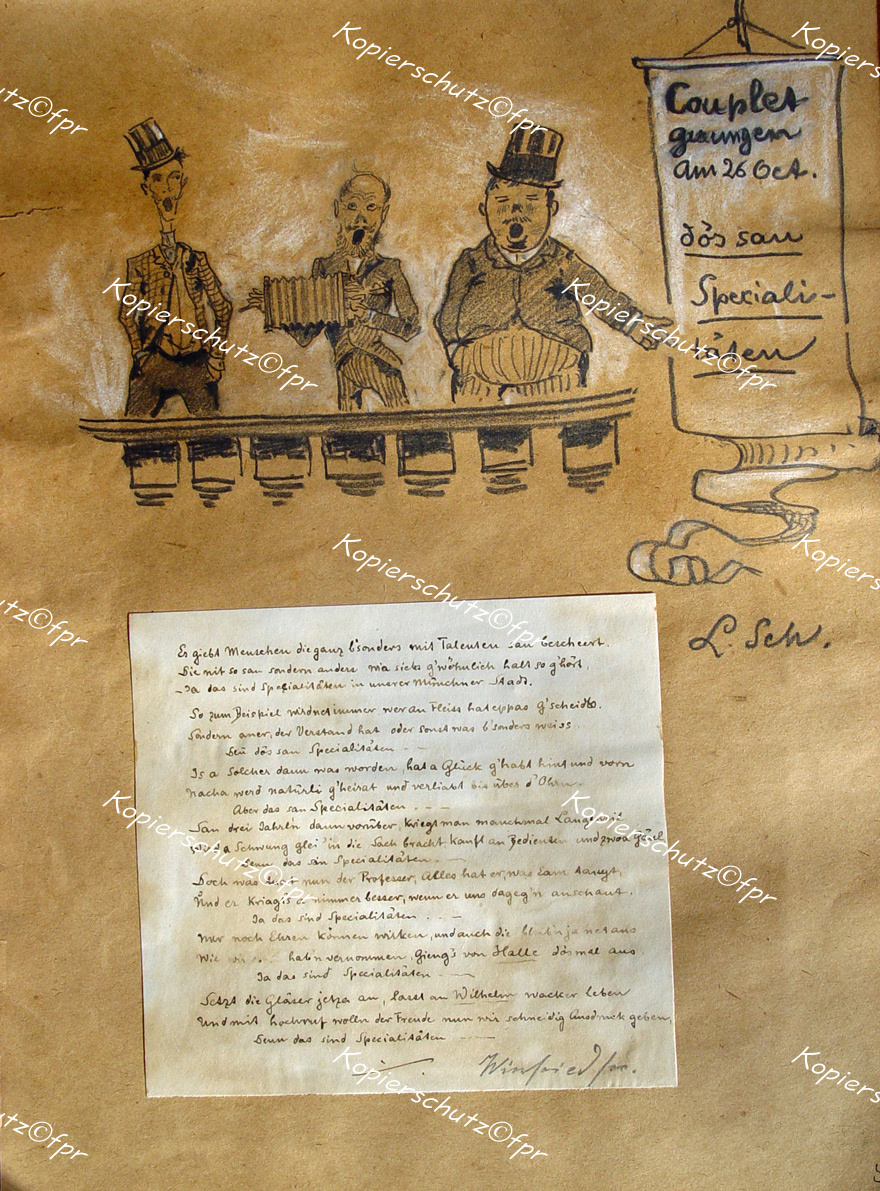 Couplet
gesungen
am 26 Oct.
dös san
Speciali-
täten
L. Sch.
Es giebt Menschen die ganz b'sonders mit Talenten san bescheert.
Die nit so san sondern anders wia sichs g'wöhnlich halt so g'hört,
Ja das sind Specialitäten in unserer Münchner Stadt.
So zum Beispiel wird net immer wer an Fleiss hat eppas G'scheidts.
Sondern aner, der Verstand hat oder sonst was b'sonders weiss
Denn dös san Specialitäten - -
Is a Solcher dann was worden, hat a Glück g'habt hint und vorn
Nacha werd natürli g'heirat und verliabt bis über d'Ohrn.
Aber das san Specialitäten - - -
San drei Jahrl'n dann vorüber, kriegt man manchmal
a Schwung glei in die Sach bracht kauft an Bedienten und zwoa Gäul
Denn das san Specialitäten. -
Doch was thut nun der Professer, Alles hat er, was Eam taugt,
Und er kriagts nimmer besser, wenn er uns dageg'n anschaut.
Ja das sind Specialitäten . . -
Nur noch Ehren können wirken, und auch die bleib'n ja net aus
Wie wir hab'n vernommen, gieng's von Halle dösmal aus.
Ja das sind Specialitäten - -
Setzt die Gläser jetza an, lasst an Wilhelm wacker leben
Und mit hochruf wolln der Freude nun wir schneidig Ausdruck geben,
Denn das sind Specialitäten - -
Winfried
Kopierschutz©fpr
Kopierschutz©fpr
Kopierschutz©fpr
Kopierschutz©fpr
Kopierschutz©fpr
Kopierschutz©fpr
Kopierschutz©fpr
Kopierschutz©fpr